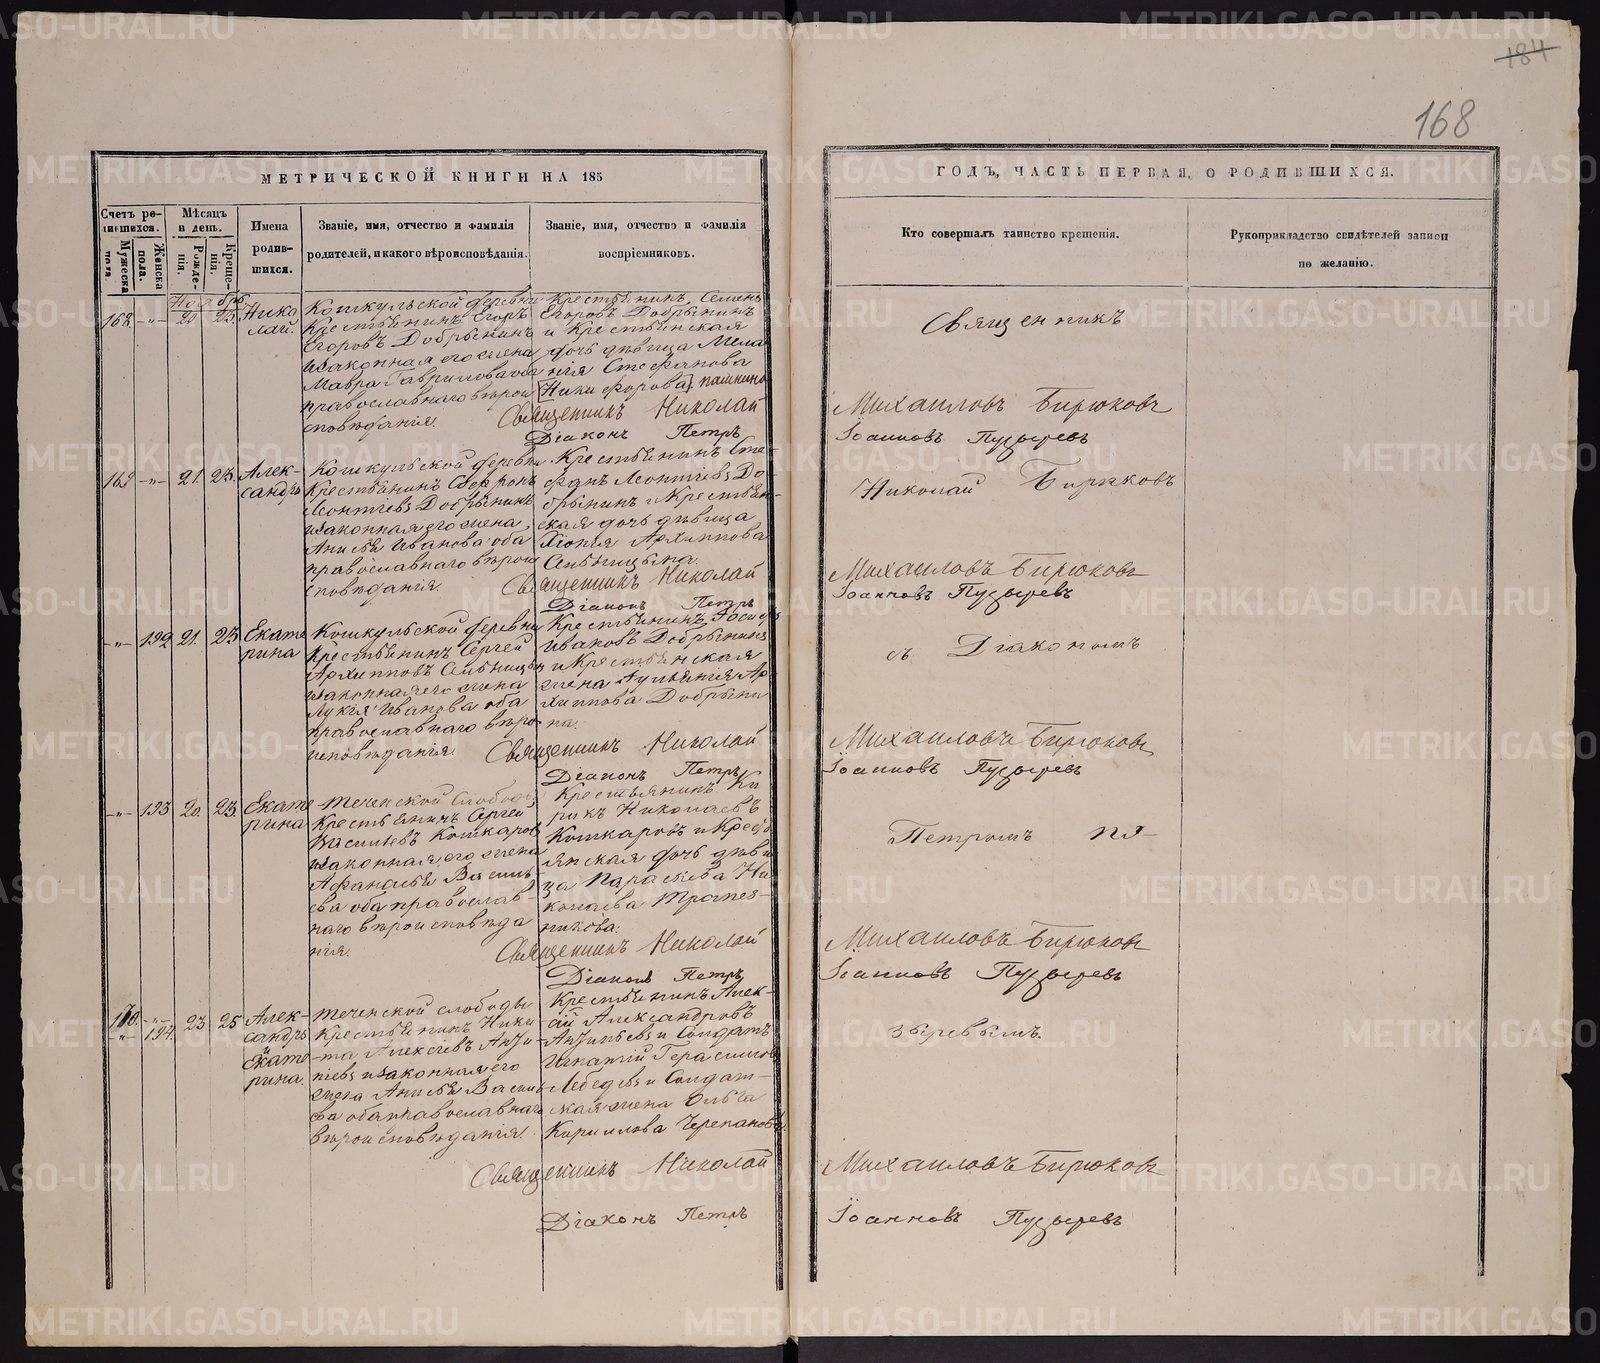 184
168
МЕТРИЧЕСКОЙ КНИГИ НА 185
ГОДЪ, ЧАСТЬ ПЕРВАЯ, О РОДИВШИХСЯ.
Счетъ ро-
дившихся.
Мужеска
пола.
Женска
пола.
Мѣсяцъ
и день.
Рожде-
нія.
Креще-
нія.
Имена
родив-
шихся.
Званіе, имя, отчество и фамилія
родителей, и какого вѣроисповѣданія.
Званіе, имя, отчество и фамилія
воспріемниковъ.
Кто совершалъ таинство крещенія.
Рукоприкладство свидѣтелей записи
по желанію.
Ноябрь
168. -„- 21. 23.
Нико
лай.
Кошкульской деревни
Крестьянинъ Егоръ
Егоровъ Добрынинъ
и законная его жена
Мавра Гаврилова оба
православнаго вѣрои
сповѣданія.
Крестьянинъ Семенъ
Егоровъ Добрынинъ
и Крестьянская
дочь дѣвица Мела
нія Стефанова
Никифорова
Священникъ Николай
Діаконъ Петръ
Священникъ
Михаиловъ Бирюковъ
Іоанновъ Пузыревъ
169 -„- 21. 23.
Алек-
сандръ
Кошкульской деревни
Крестьянинъ Софронъ
Леонтіевъ Добрынинъ
и законная его жена
Анисья Иванова оба
православнаго вѣрои
сповѣданія.
Крестьянинъ Сте-
фанъ Леонтіевъ До
брынинъ и Крестьян-
ская дочь дѣвица
Хіонія Архиппова
Священникъ Николай
Діаконъ Петръ
Николай Бирюковъ
Михаиловъ Бирюковъ
Іоанновъ Пузыревъ
-„- 192 21. 23
Екате
рина
Кошкульской деревни
Крестьянинъ Сергей
Архипповъ
и законная его жена
Лукія Иванова оба
православнаго вѣро
исповѣданія.
Крестьянинъ
Ивановъ Добрынинъ
и Крестьянская
жена Ар
хиппова Добрыни
на.
Священникъ Николай
Діаконъ Петръ
съ Діакономъ
Михаиловъ Бирюковъ
Іоанновъ Пузыревъ
-„- 193 20. 23.
Екате
рина
Теченской Слободы
Крестьянинъ Сергей
Васильевъ Кошкаровъ
и законная его жена
Афанасья Василь
ева оба православ-
наго вѣроисповѣда
нія.
Крестьянинъ Ки
рикъ Николаевъ
Кошкаровъ и Крестья
янская дочь дѣви
ца Параскева Ни
колаева Трапез-
никова.
Священникъ Николай
Діаконъ Петръ
Петромъ Пу-
Михаиловъ Бирюковъ
Іоанновъ Пузыревъ
170. -„- 23 25
-„- 194.
Алек-
сандръ
и
Екате
рина.
Теченской слободы
Крестьянинъ Ники
-та Алексіевъ
и законная его
жена Анисья Василь
ева оба православнаго
вѣроисповѣданія.
Крестьянинъ Алек-
сій Александровъ
и Солдатъ
Игнатій Герасимовъ
Лебедевъ и Солдат-
ская жена Ольга
Кириллова Черепанова.
Священникъ Николай
Діаконъ Петръ
зыревымъ.
Михаиловъ Бирюковъ
Іоанновъ Пузыревъ
METRIKI.GASO-URAL.RU